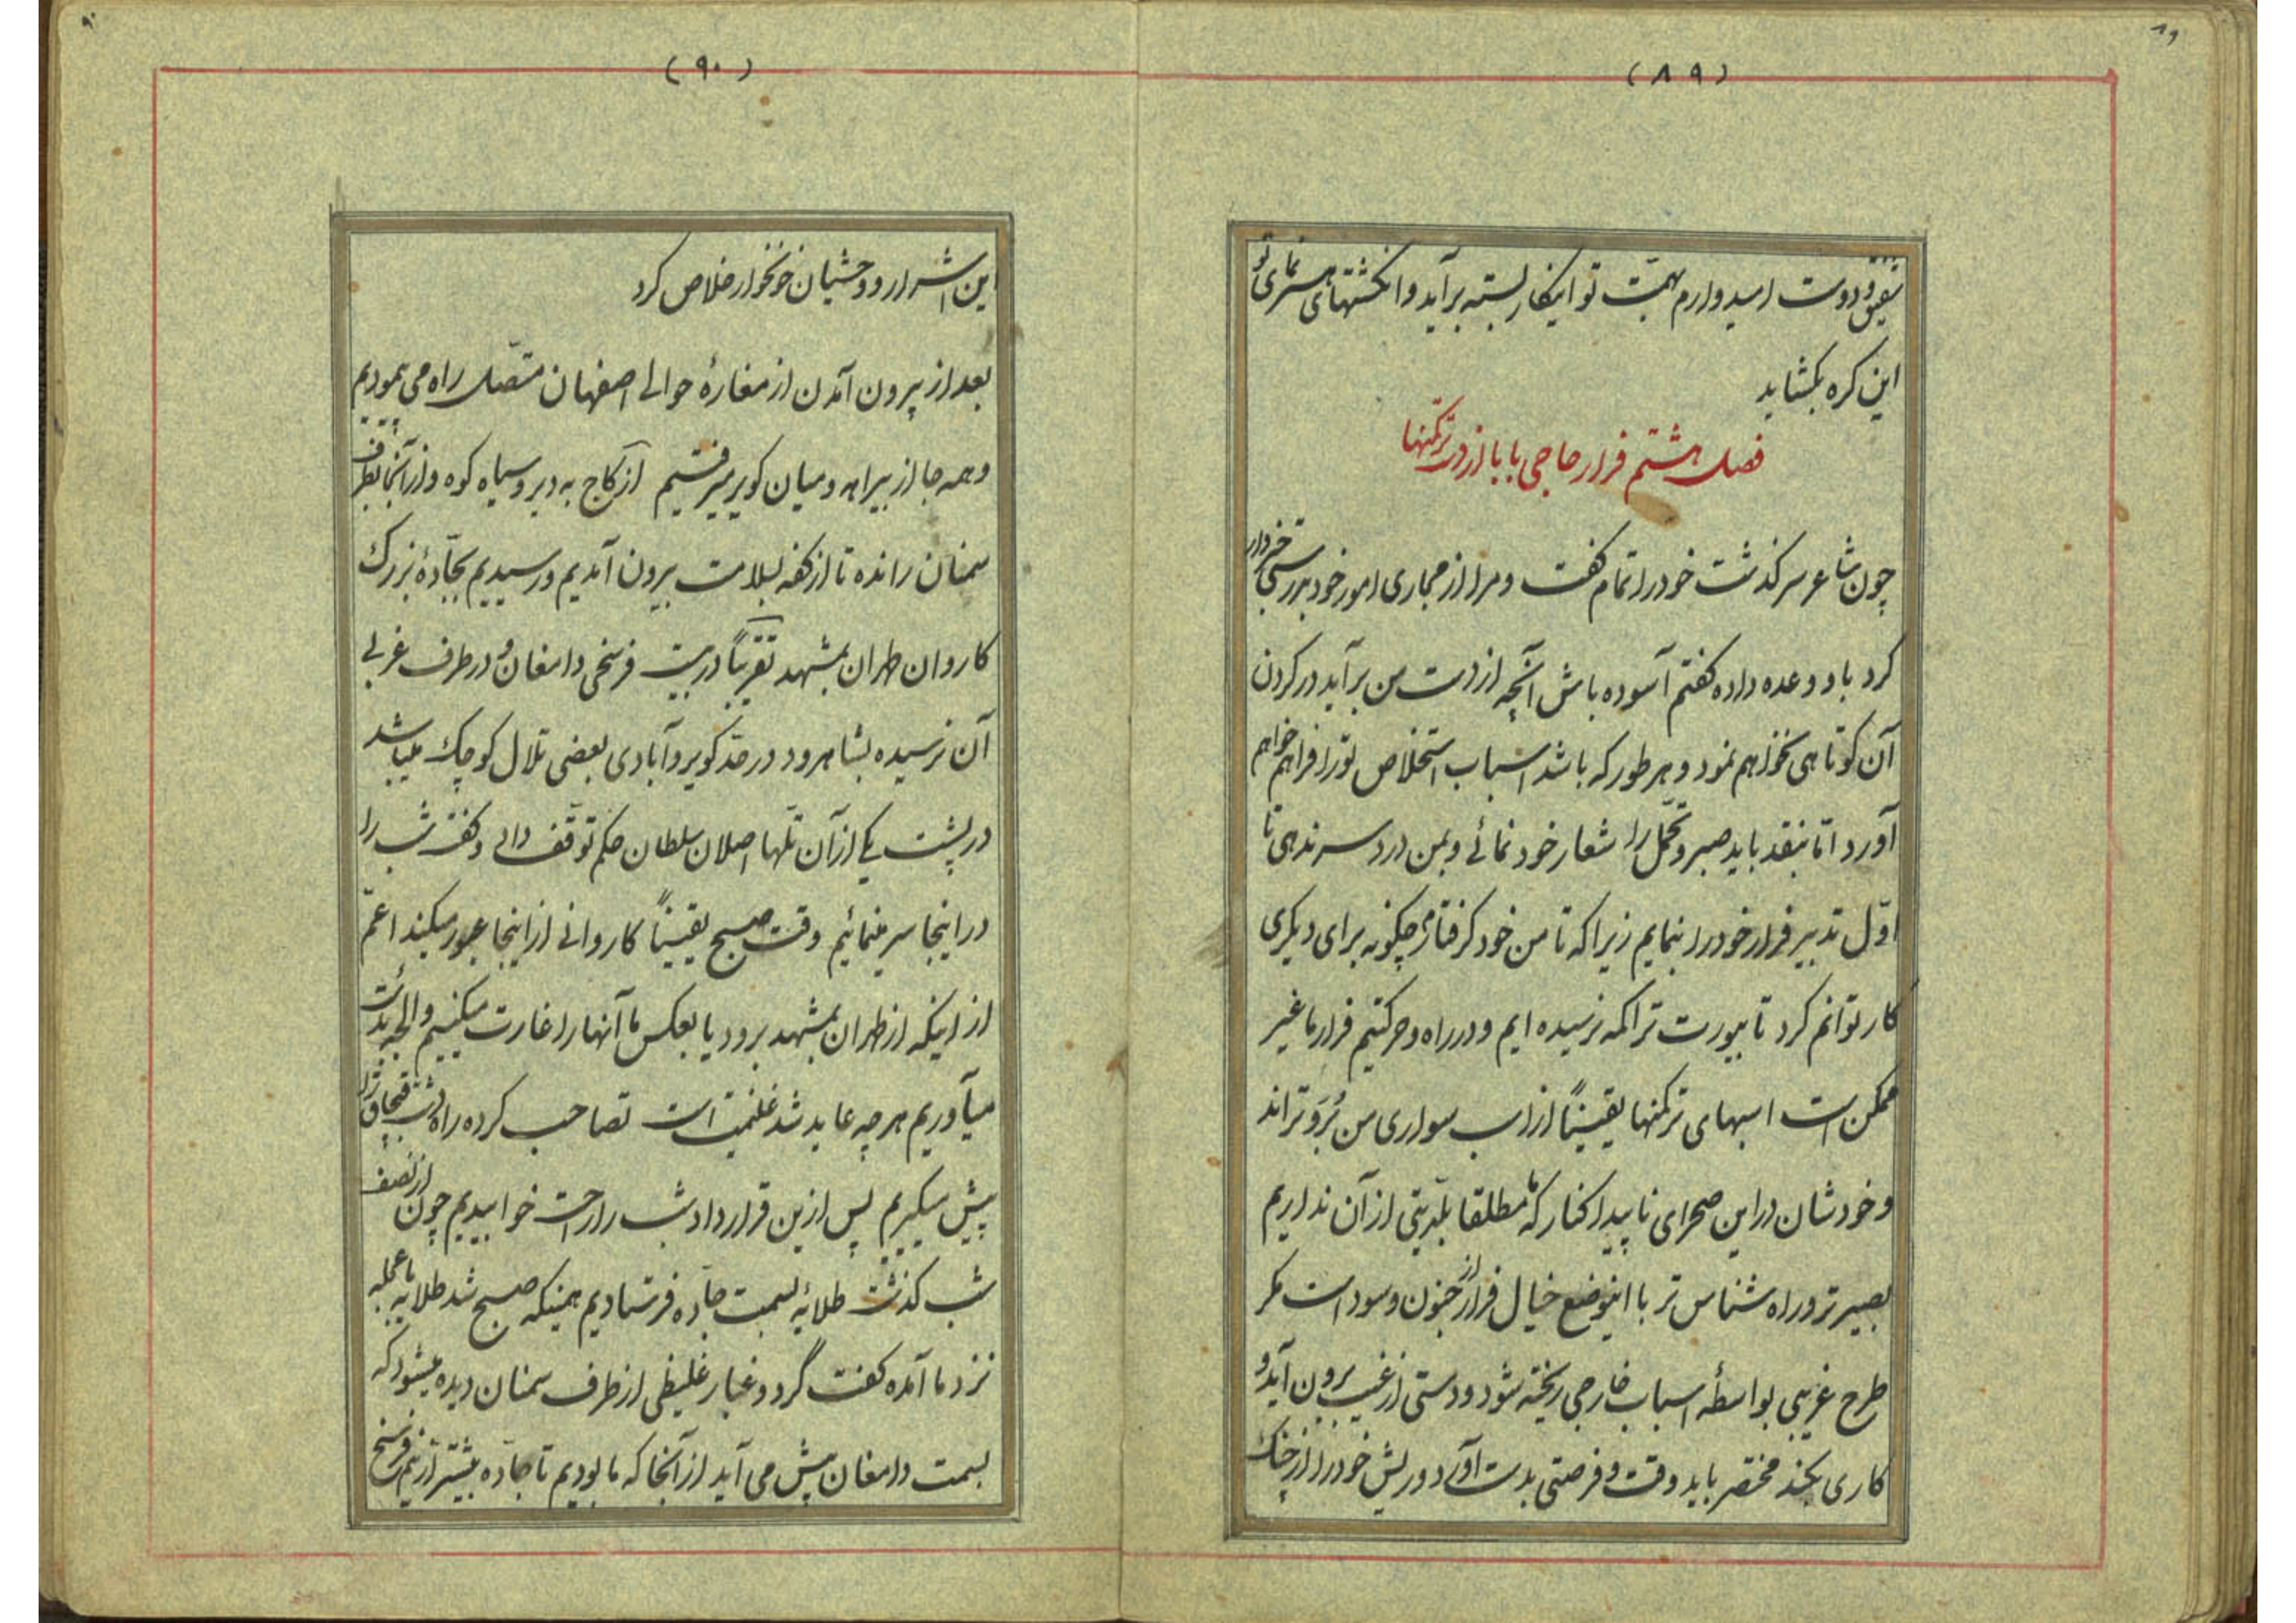 ۸۹
(۸۹)
شفیق و دوست امیدوارم بهمّت تو اینکار بسته برآید و انکشتهای هنرنمای تو
این کره بکشاید
فصل هشتم فرار حاجی بابا از دست ترکمنها
چون شاعر سرکذشت خود را تمام کفت و مرا از مجاری امور خود بدرستی خبردار
کرد باو وعده داده کفتم آسوده باش آنچه از دست من برآید در کردن
آن کوتاهی نخواهم نمود و هر طور که باشد اسباب استخلاص تو را فراهم خواهم
آورد امّا بنقد باید صبر و تحمّل را شعار خود نمائی و بمن دردسر ندهی تا
اوّل تدبیر فرار خود را بنمایم زیرا که تا من خود کرفتارم چکونه برای دیکری
کار توانم کرد تا بیورت تراکمه نرسیده ایم و در راه و حرکتیم فرار ما غیر
ممکن است اسبهای ترکمنها یقیناً از اسب سواری من بُرو تراند
و خودشان در این صحرای ناپیدا کنار که ما مطلقا بلدیّتی از آن نداریم
بصیرتر و راه شناس تر با اینوضع خیال فرار از جنون و سوداست مکر
طرح غریبی بواسطهٔ اسباب خارجی ریخته شود و دستی از غیب برون آید و
کاری بکند مختصر باید وقت و فرصتی بدست آورد و ریش خود را از چنک
۹۰
(۹۰)
این اشرار و وحشیان خونخوار خلاص کرد
بعد از بیرون آمدن از مغارهٔ حوالی اصفهان متّصل راه می پیمودیم
و همه جا از بیراهه و میان کویر میرفتیم از کاج به دیر و سیاه کوه و از آنجا بطرف
سمنان رانده تا از کفه بسلامت بیرون آمدیم و رسیدیم بجادّهٔ بزرک
کاروان طهران بمشهد تقریباً در بیست فرسخی دامغان و در طرف غربی
آن نرسیده بشاهرود در حدّ کویر و آبادی بعضی تلال کوچک میباشد
در پشت یکی از آن تلّها اصلان سلطان حکم توقّف داد و کفت شب را
در اینجا سر مینمائیم وقت صبح یقیناً کاروانی از اینجا عبور میکند اعمّ
از اینکه از طهران بمشهد برود یا بعکس ما آنها را غارت میکنیم و الحمد
میآوریم هر چه عاید شد غنیمت است تصاحب کرده راه دشت قبچاق را
پیش میکیریم پس ازین قرارداد شب را راحت خوابیدیم چون از نصف
شب کذشت طلایهٔ بسمت جادّه فرستادیم همینکه صبح شد طلایه با عجله
نزد ما آمده کفت گرد و غبار غلیظی از طرف سمنان دیده میشود که
بسمت دامغان پیش می آید از آنجا که ما بودیم تا جادّه بیشتر از نیم فرسخ